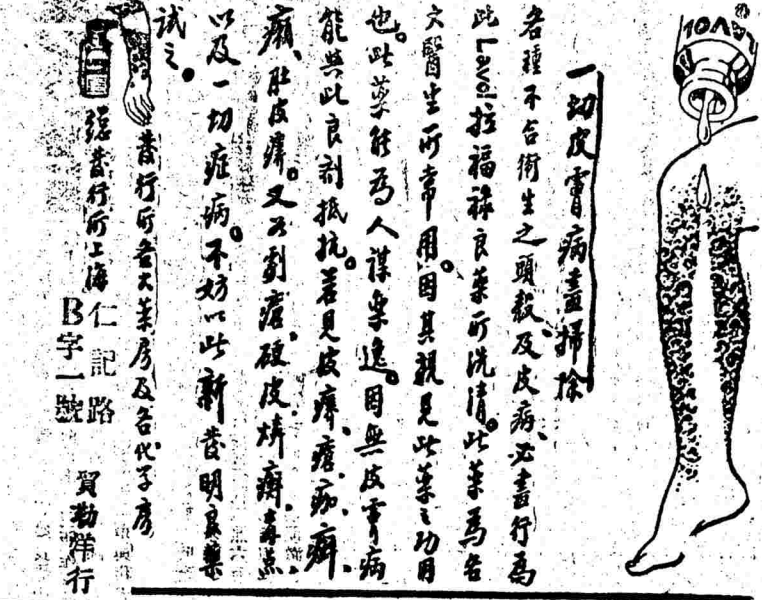 LAVOL
一切皮膚病盡掃除
各種不合衛生之頭殼、及皮病、必盡行爲
此Lavol拉福祿良藥所洗清。此藥爲各
大醫生所常用。因其親見此藥之功用
也。此藥能爲人謀樂逸。因無皮膚病
能與此良劑抵抗。若見皮癢、瘡、痂、癬、
癩、肚皮癢。又如割瘡、破皮、
以及一切症病。不妨以此新發明良藥
試之。
發行所各大藥房及各代
總發行所上海
仁記路
B字一號
貿勒洋行